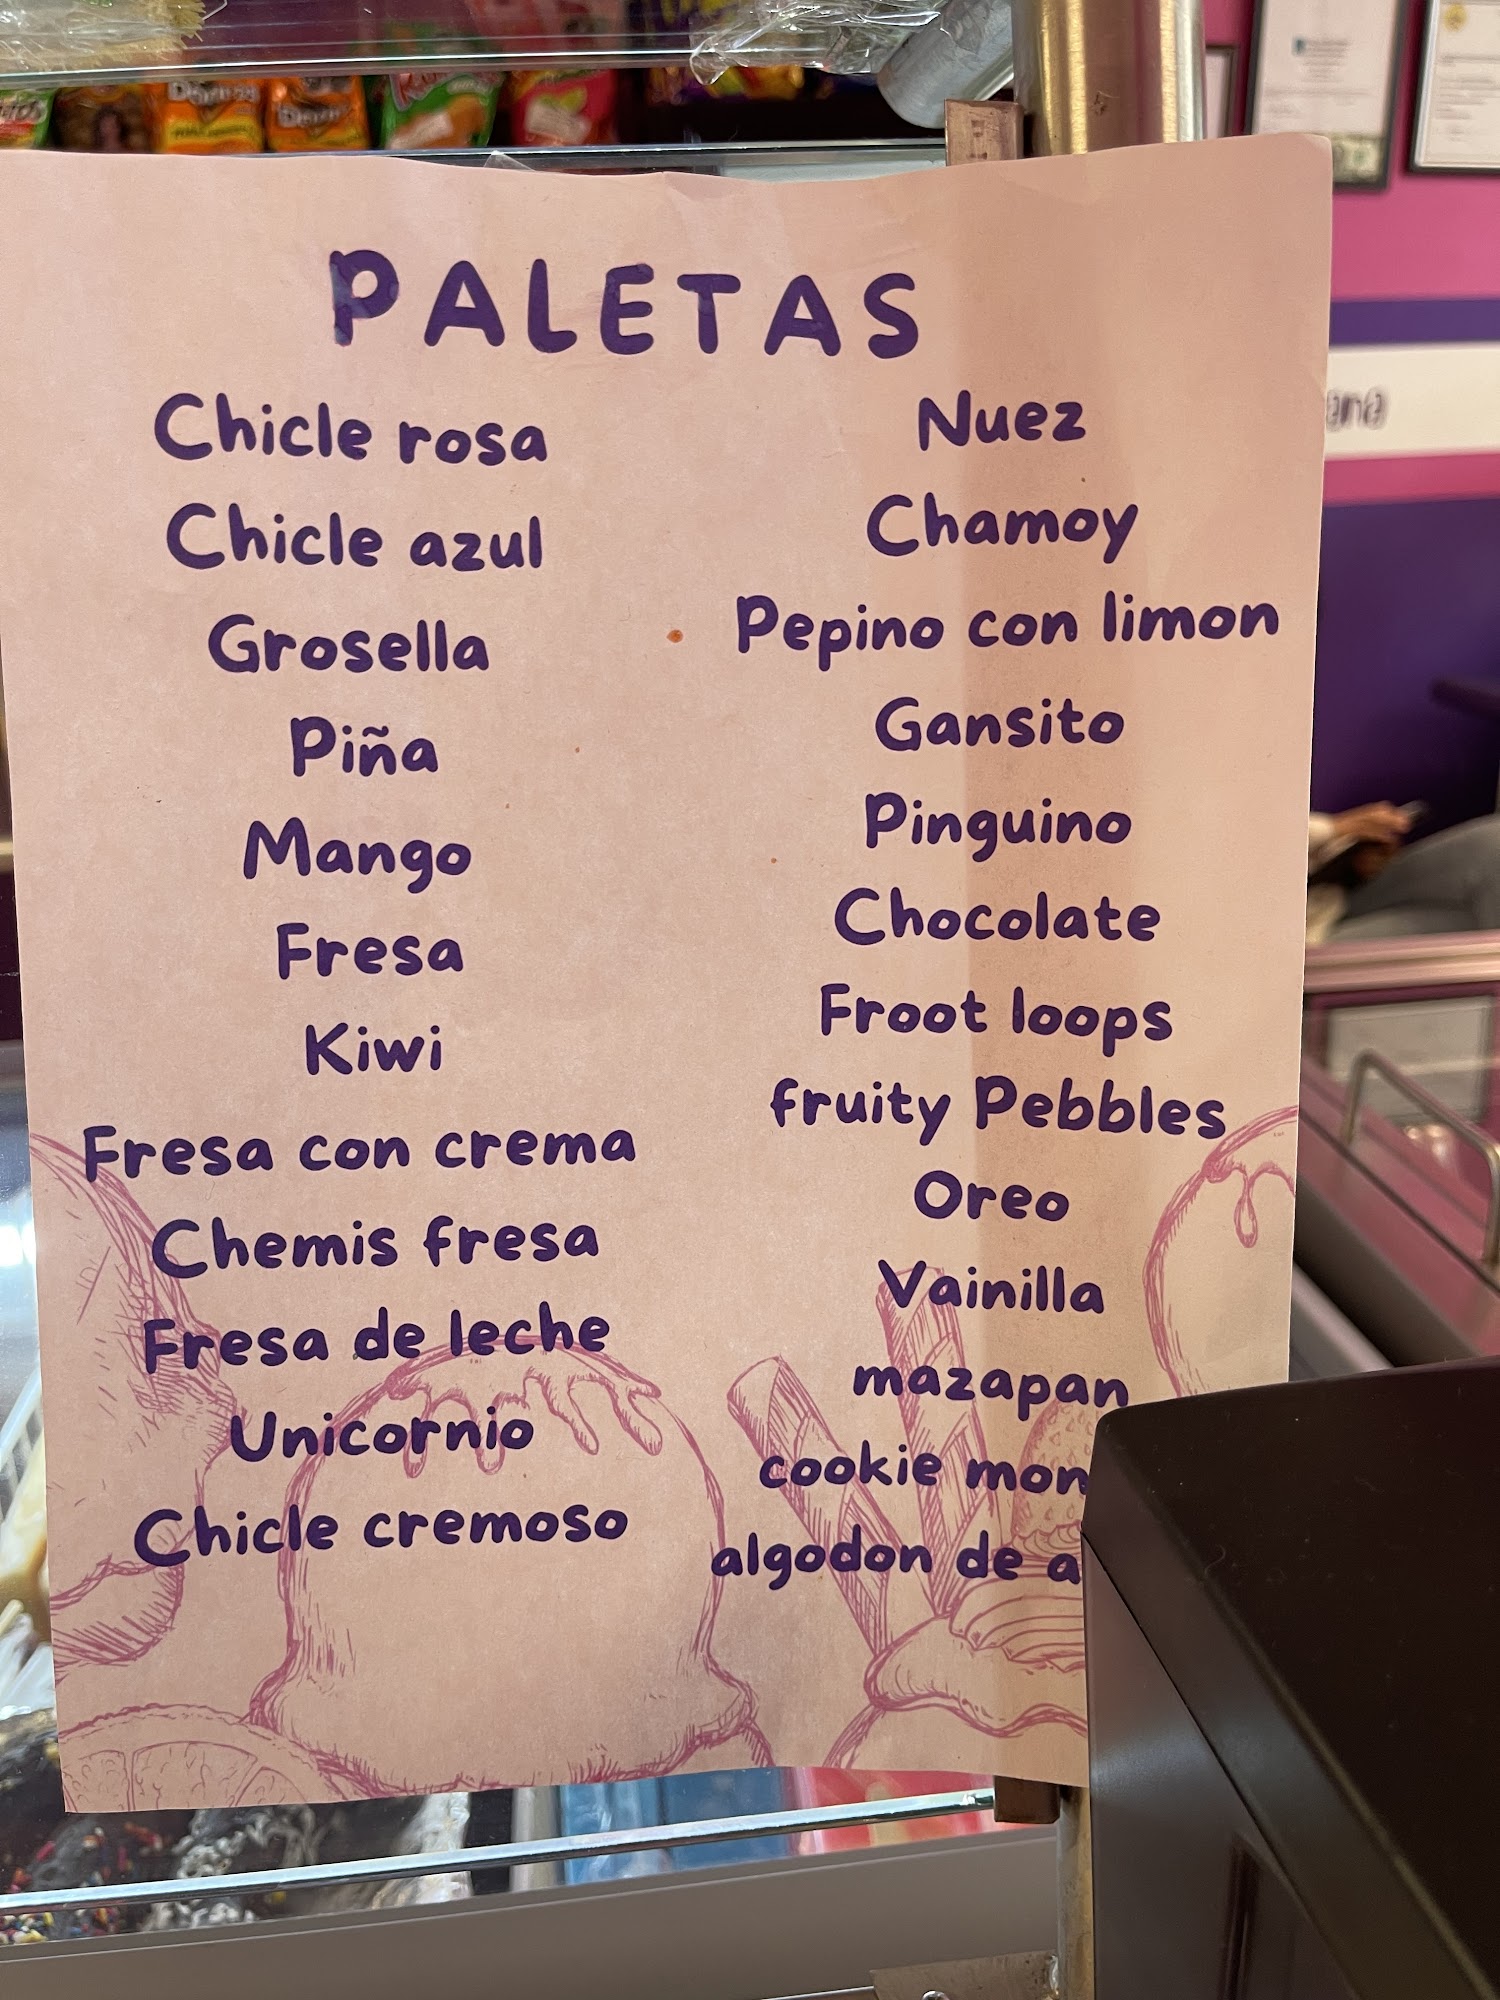 PALETAS
Chicle rosa
Chicle azul
Grosella
Piña
Mango
Fresa
Kiwi
Fresa con crema
Chemis fresa
Fresa de leche
Unicornio
Chicle cremoso
Nuez
Chamoy
Pepino con limon
Gansito
Pinguino
Chocolate
Froot loops
fruity Pebbles
Oreo
Vainilla
mazapan
cookie mon
algodon de a
Doritos